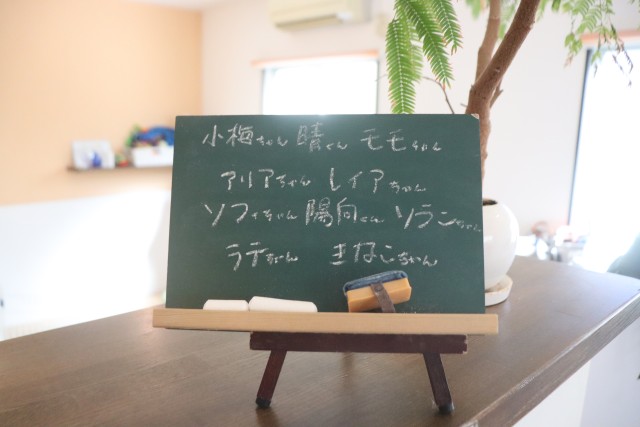 小梅ちゃん 晴くん モモちゃん
アリアちゃん レイアちゃん
ソフィちゃん 陽向くん ソランちゃん
ラテちゃん きなこちゃん